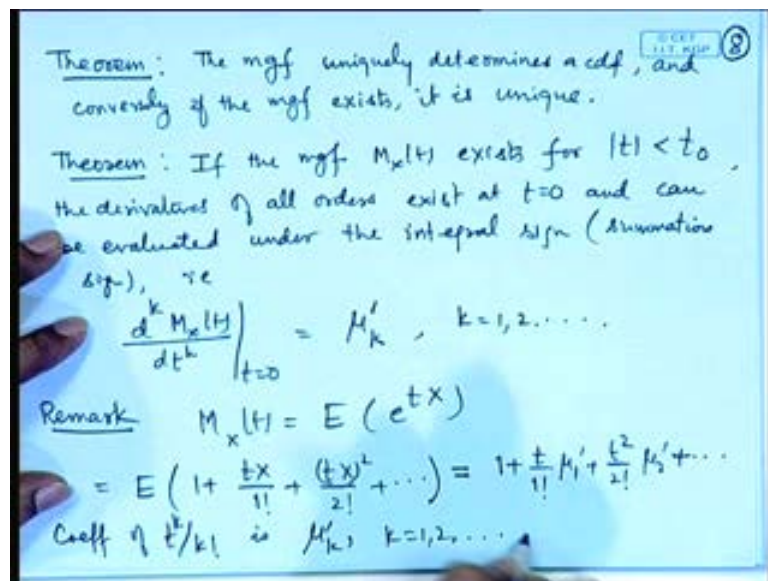 © CET
I.I.T. KGP
8
Theorem : The mgf uniquely determines a cdf, and
conversly if the mgf exists, it is unique.
Theorem : If the mgf Mₓ(t) exists for |t| < t₀,
the derivatives of all orders exist at t=0 and can
be evaluated under the integral sign (summation
sign), ie
d^k Mₓ(t)/dt^k |t=0 = μ'ₖ , k=1,2.....
Remark Mₓ(t) = E(e^{tX})
= E(1 + tX/1! + (tX)²/2! + ···) = 1 + t/1! μ₁' + t²/2! μ₂' + ···
Coeff of t^k/k! is μ'ₖ, k=1,2,....